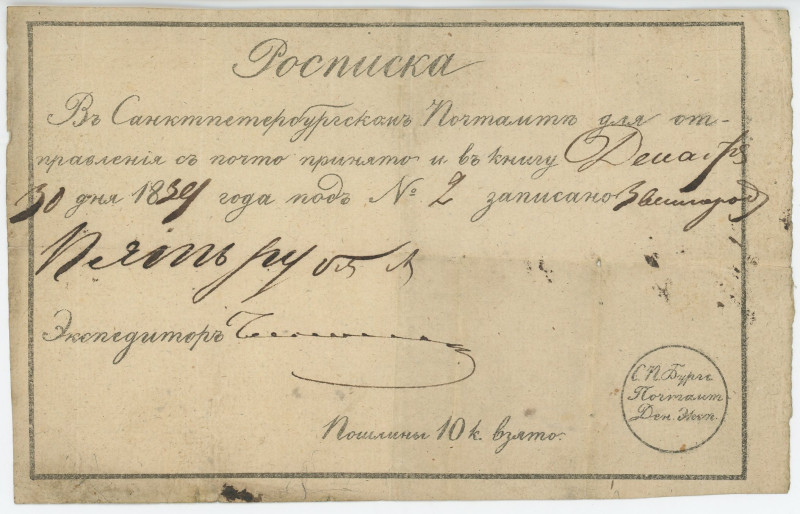 Росписка
Въ Санктпетербургскомъ Почтамтѣ для от-
правленія съ почтою принято и въ книгу Декабря
30 дня 1839 года подъ № 2 записано Звенигород
Пять рубл
Экспедиторъ
Пошлины 10 к. взято.
С.П.Бургс.
Почтамт.
Ден. Эксп.